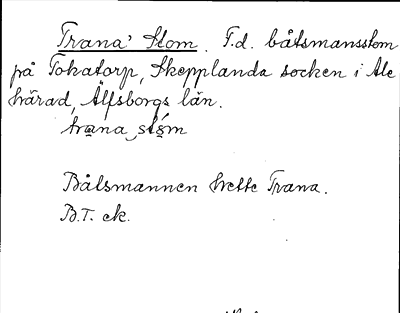 Trana' Stom. F.d. båtsmansstom
på Tokatorp, Skepplanda socken i Ale
härad, Älfsborgs län.
trana stóm
Båtsmannen hette Trana.
B.T. ek.